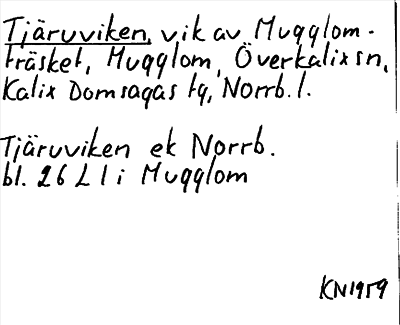 Tjäruviken, vik av Mugglom-
träsket, Mugglom, Överkalix sn,
Kalix Domsagas tg, Norrb. l.
Tjäruviken ek Norrb.
bl. 26 L l i Mugglom
KN1959